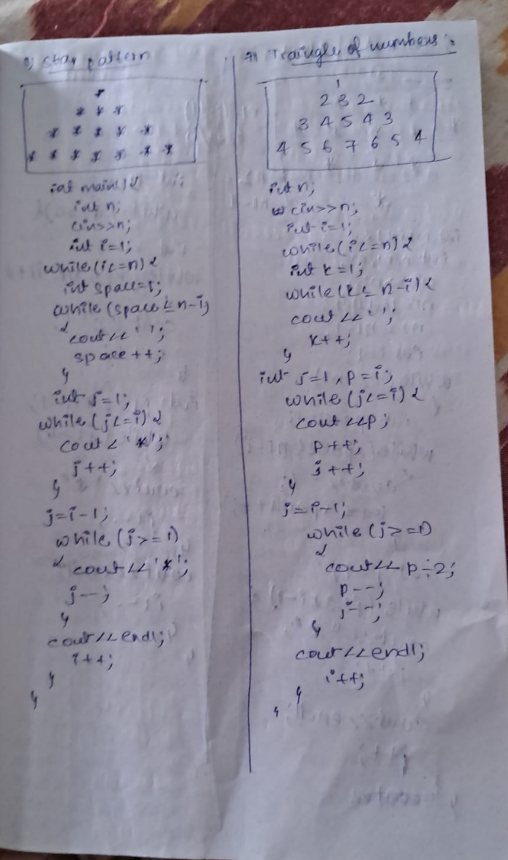 Star pattern
*
* * *
* * * * *
* * * * * * *
int main() {
int n;
cin>>n;
int i=1;
while(i<=n){
int space=1;
while(space<=n-i)
{
cout<<' ';
space++;
}
int j=1;
while(j<=i){
cout<'*';
j++;
}
j=i-1;
while(j>=1)
{ cout<<'*';
j--;
}
cout<<endl;
i++;
}
}
Triangle of numbers:
1
2 3 2
3 4 5 4 3
4 5 6 7 6 5 4
int n;
cin>>n;
int i=1;
while(i<=n){
int k=1;
while(k<=n-i){
cout<<' ';
k++;
}
int j=1, p=i;
while(j<=i){
cout<<p;
p++;
j++;
}
j=i-1;
while(j>=1)
{
cout<<p-2;
p--;
j--;
}
cout<<endl;
i++;
}
}